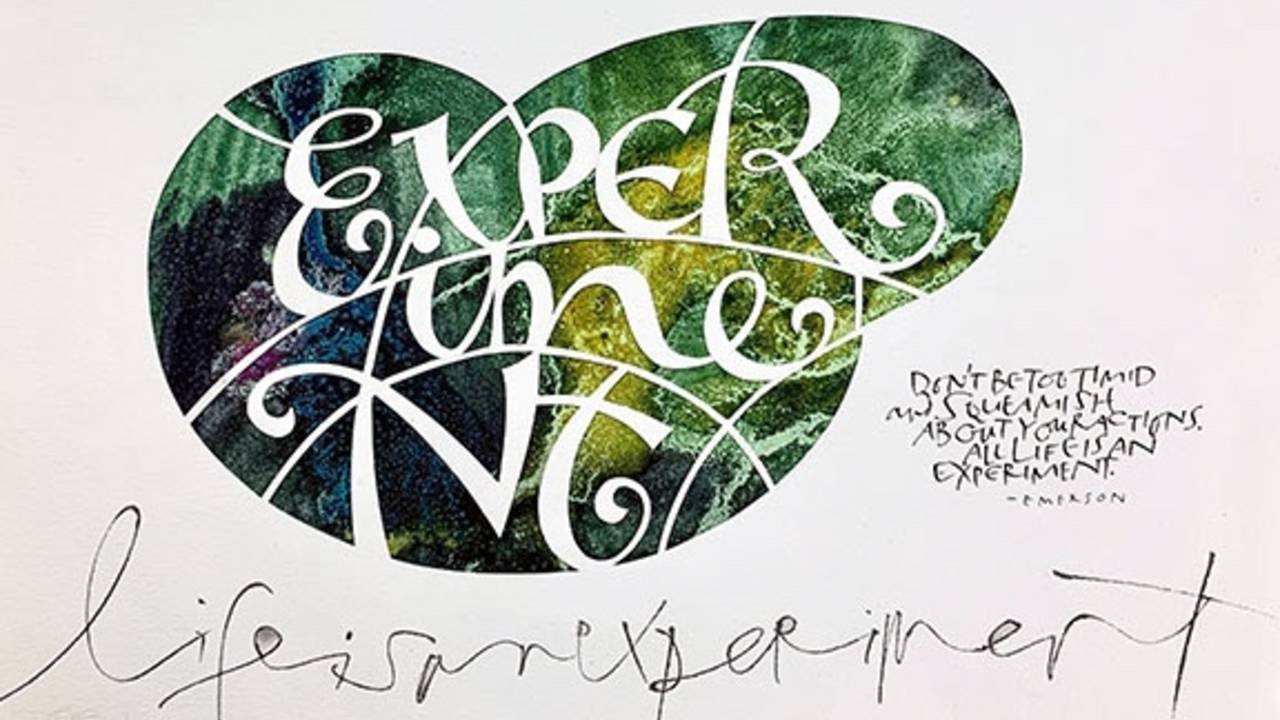 EXPER
ime
NT
DON'T BE TOO TIMID
AND SQUEAMISH
ABOUT YOUR ACTIONS.
ALL LIFE IS AN
EXPERIMENT.
-EMERSON
life is an experiment